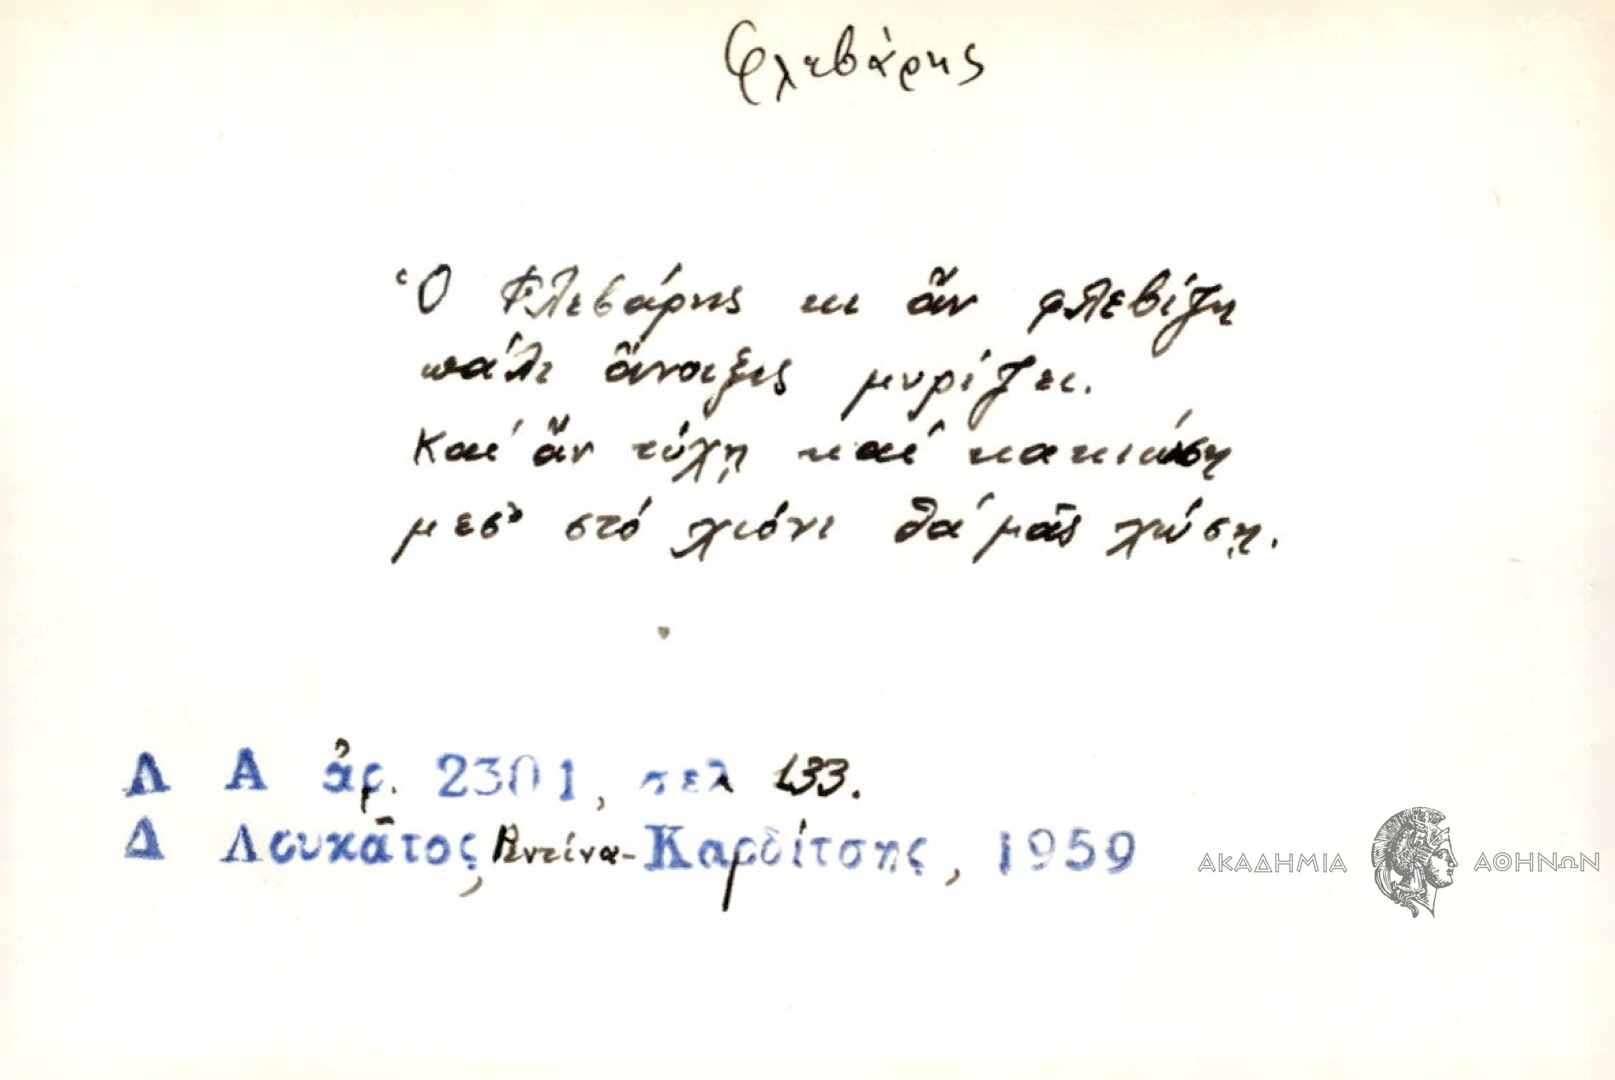 Φλεβάρης
Ὁ Φλεβάρης κι ἂν φλεβίζῃ
πάλι ἄνοιξις μυρίζει.
Καί ἂν τύχῃ καί κακιώσῃ
μεσ' στό χιόνι θά μᾶς χώσῃ.
Λ Α ἀρ. 2301, σελ 133.
Δ Λουκᾶτος, Ρεντίνα-Καρδίτσης, 1959
ΑΚΑΔΗΜΙΑ ΑΘΗΝΩΝ